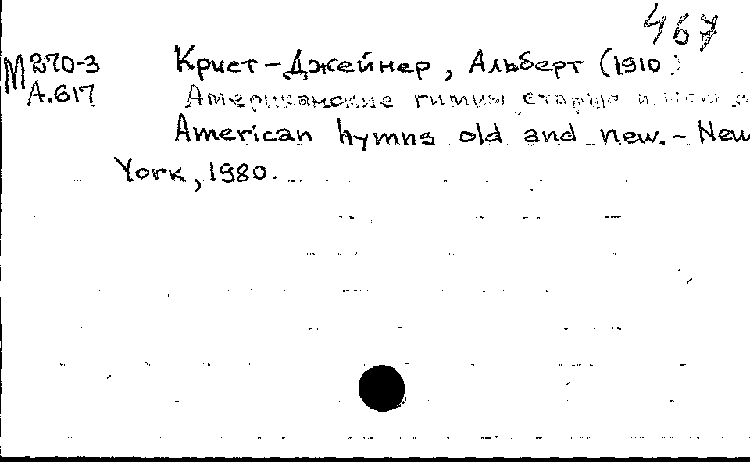 467
М270-3 Крист-Джейнер, Альберт (1910)
А.617 Американские гимны старые и
American hymns old and new. - New
York, 1980.